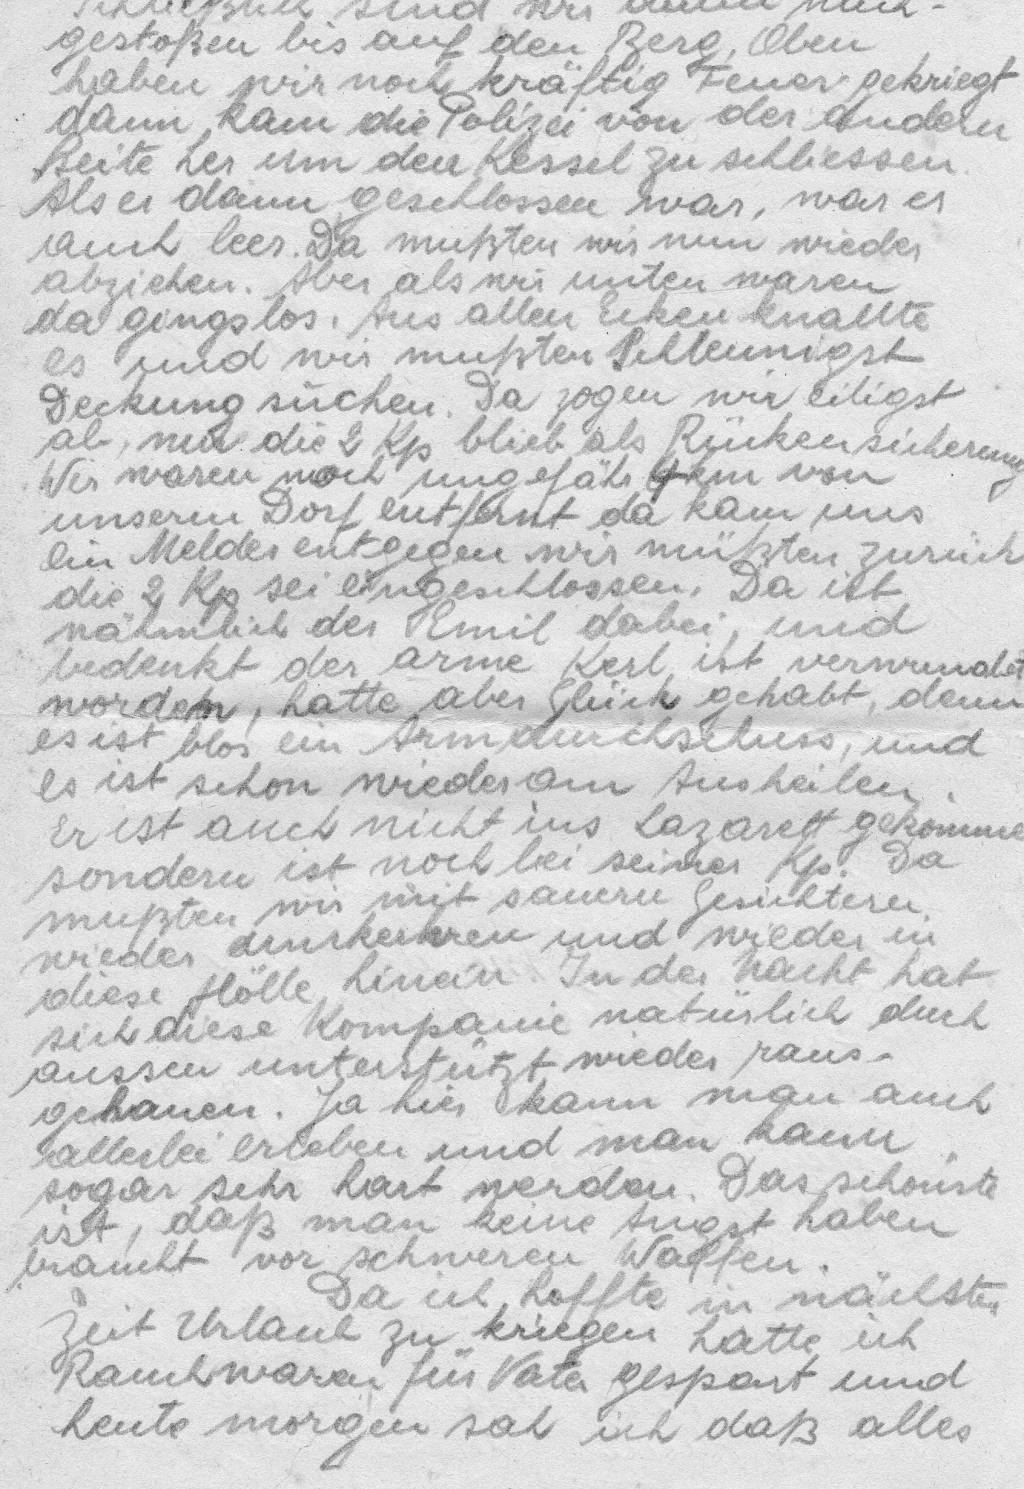 Schließlich sind wir dann nach-
gestoßen bis auf den Berg. Oben
haben wir noch kräftig Feuer gekriegt
dann kam die Polizei von der andern
Seite her um den Kessel zu schliessen.
Als er dann geschlossen war, war er
auch leer. Da mußten wir nun wieder
abziehen. Aber als wir unten waren
da gingslos. Aus allen Ecken knallte
es und wir mußten Schleunigst
Deckung suchen. Da zogen wir eiligst
ab, nur die 2 Kp blieb als Rückensicherung
Wir waren noch ungefähr km von
unserm Dorf entfernt da kam uns
ein Melder entgegen wir müßten zurück
die 2 Kp sei eingeschlossen. Da ist
nähmlich der Emil dabei, und
bedenkt der arme Kerl ist verwundet
worden, hatte aber Glück gehabt, denn
es ist blos ein Armdurchschuss, und
es ist schon wieder am Ausheilen.
Er ist auch nicht ins Lazarett gekomme
sondern ist noch bei seiner Kp. Da
mußten wir mit sauern Gesichtern
wieder umkehren und wieder in
diese Hölle hinein. In der Nacht hat
sich diese Kompanie natürlich duch
aussen unterstützt wieder raus-
gehauen. Ja hier kann man auch
allerlei erleben und man kann
sogar sehr hart werden. Das schönste
ist, daß man keine Angst haben
braucht vor schweren Waffen.
Da ich hoffte in nächsten
Zeit Urlaub zu kriegen hatte ich
Rauchwaren für Vater gespart und
heute morgen sah ich daß alles